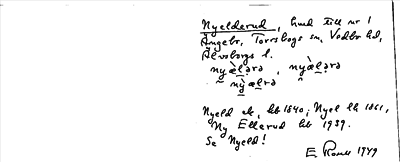 Nyelderud, hmd till nr 1
Ängebr, Torrskogs sn, Vedbo hd,
Älvsborgs l.
nyælərə, nyælərə
nyælrə
Nyeld eb, hb 1840; Nyel hb 1861,
Ny Ellerud hb 1939.
Se Nyeld!
E 1949